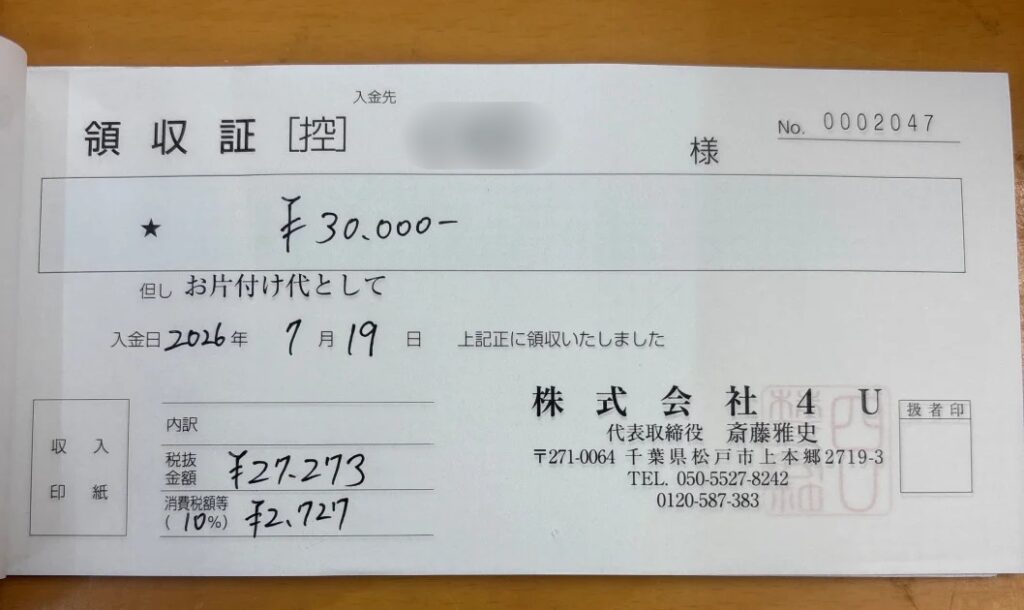 入金先
領収証 [控]
様
No. 0002047
★ ¥30.000-
但し お片付け代として
入金日 2026年 7月 19日 上記正に領収いたしました
収入
印紙
内訳
税抜
金額 ¥27.273
消費税額等
(10%) ¥2.727
株式会社4U
代表取締役 斎藤雅史
〒271-0064 千葉県松戸市上本郷2719-3
TEL. 050-5527-8242
0120-587-383
扱者印